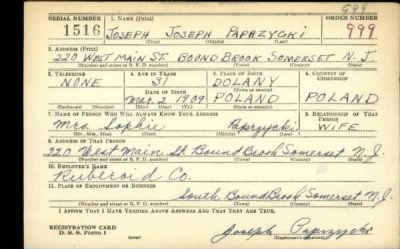 999
SERIAL NUMBER 1. NAME (Print) ORDER NUMBER
1516 JOSEPH JOSEPH PAPRZYCKI 999
2. ADDRESS (Print)
220 WEST MAIN ST. BOUND BROOK SOMERSET N. J.
(Number and street or R. F. D. number) (Town) (County) (State)
3. TELEPHONE 4. AGE IN YEARS 5. PLACE OF BIRTH 6. COUNTRY OF CITIZENSHIP
NONE 31 DOLANY
DATE OF BIRTH (Town or county)
Mar. 2 1909 POLAND POLAND
(Exchange) (Number) (Mo.) (Day) (Yr.) (State or country)
7. NAME OF PERSON WHO WILL ALWAYS KNOW YOUR ADDRESS 8. RELATIONSHIP OF THAT PERSON
Mrs. Sophie Paprzycki WIFE
(Mr., Mrs., Miss) (First) (Middle) (Last)
9. ADDRESS OF THAT PERSON
220 West Main St Bound Brook Somerset N. J.
(Number and street or R. F. D. number) (Town) (County) (State)
10. EMPLOYER'S NAME
Ruberoid Co.
11. PLACE OF EMPLOYMENT OR BUSINESS
South Bound Brook Somerset N. J.
(Number and street or R. F. D. number) (Town) (County) (State)
I AFFIRM THAT I HAVE VERIFIED ABOVE ANSWERS AND THAT THEY ARE TRUE.
REGISTRATION CARD
D. S. S. Form 1 Joseph Paprzycki
(Registrant's signature)